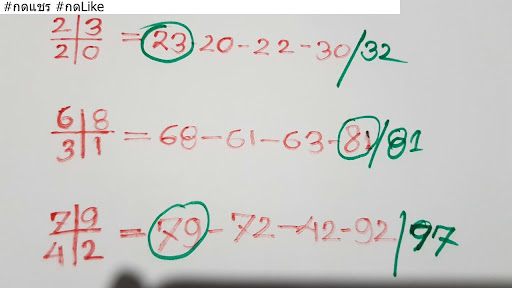 #กดแชร #กดLike
2|3
2|0 = 23 20-22-30/32
6|8
3|1 = 68-61-63-81/81
7|9
4|2 = 79-72-42-92/97